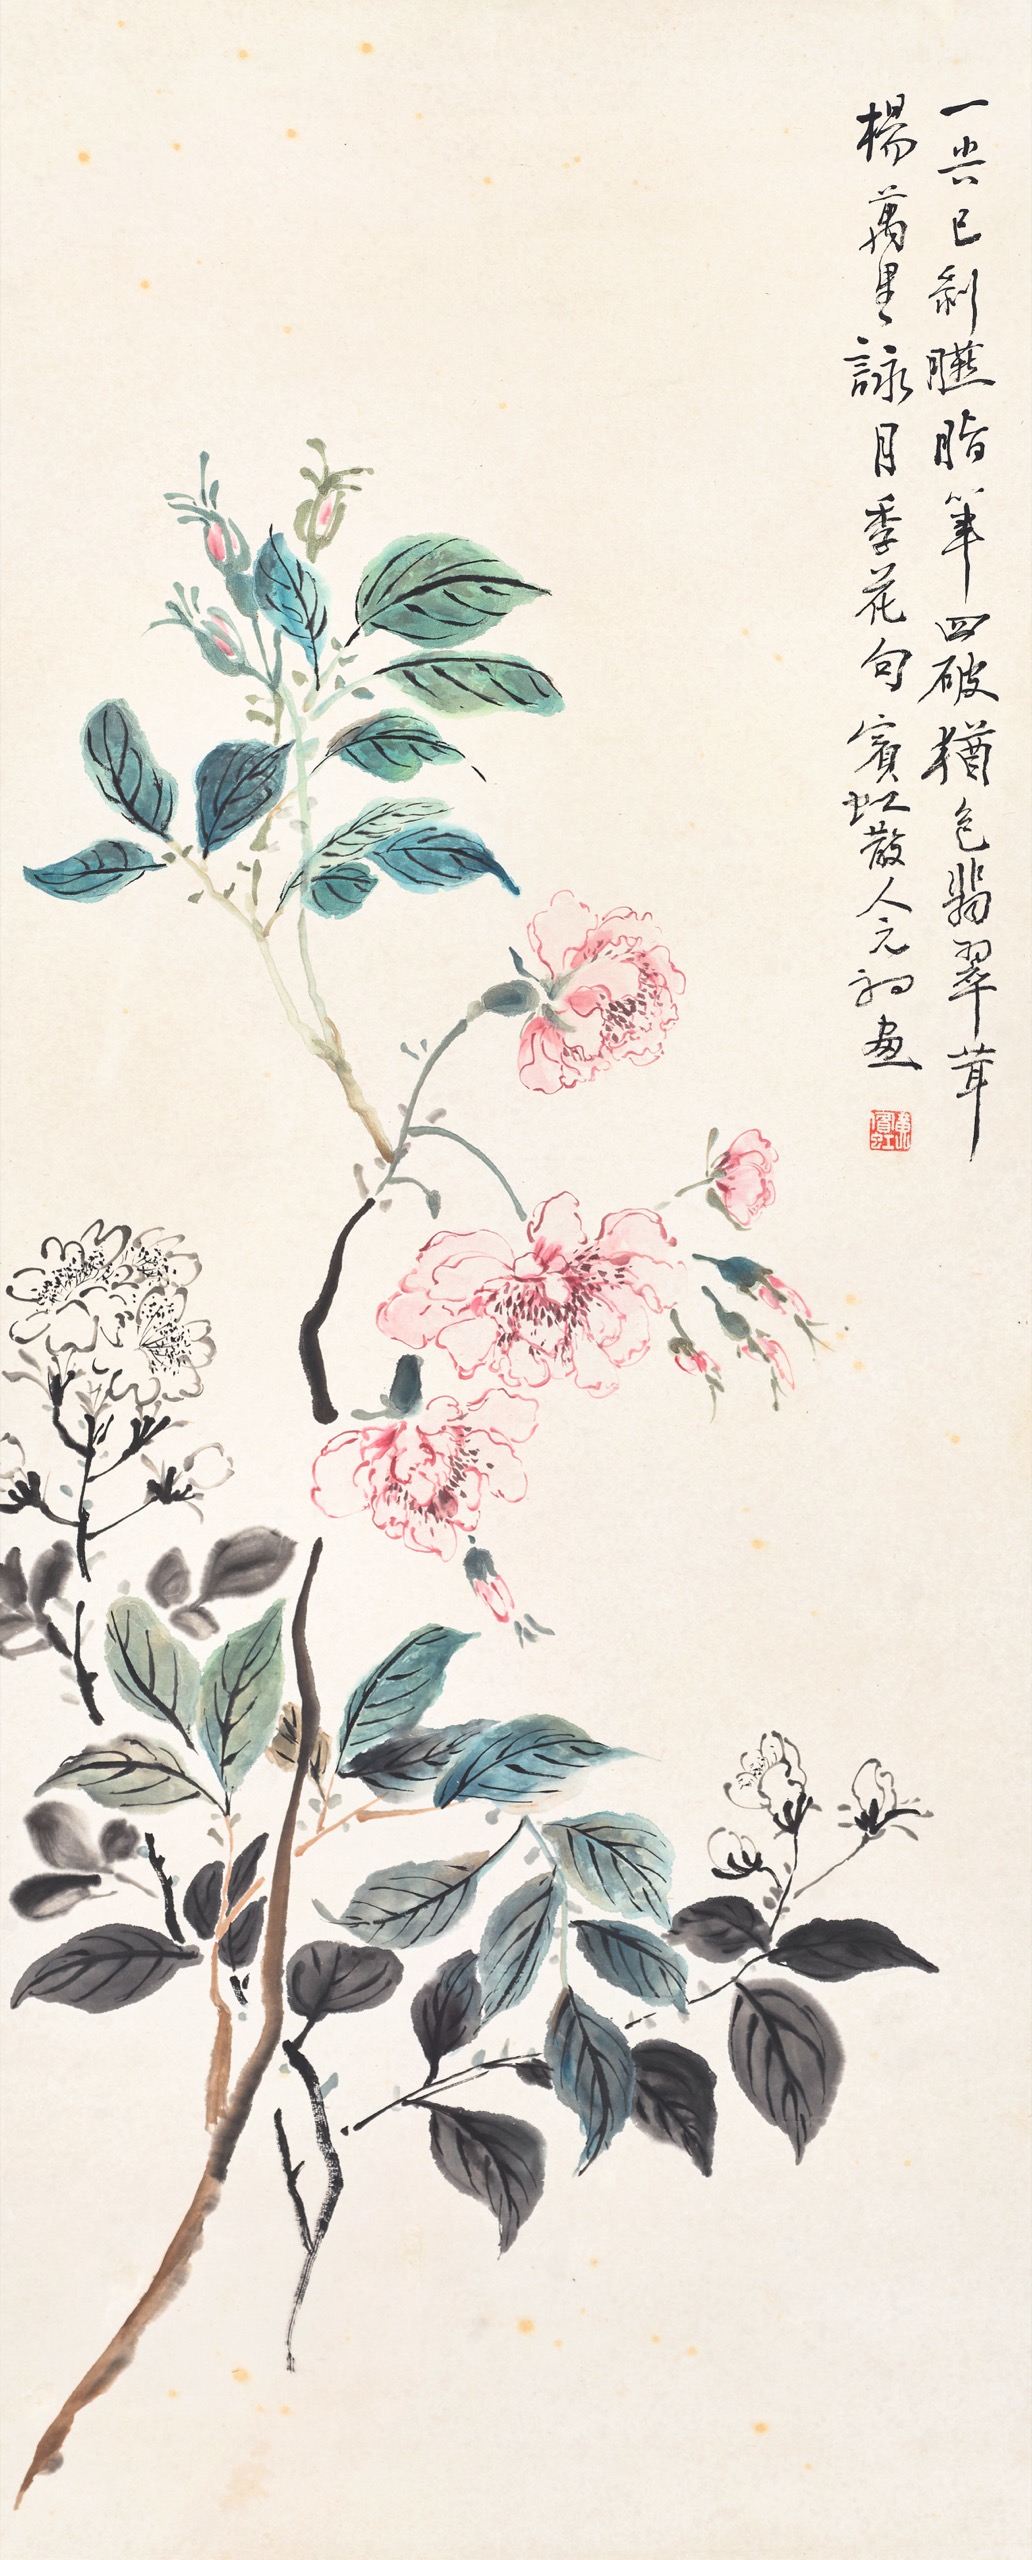 一尖已剝臙脂筆四破猶包翡翠茸
楊萬里詠月季花句賓虹散人元畫
黃賓虹